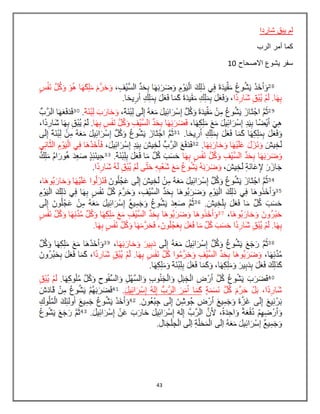 لم يبق شاردا
كما أمر الرب
سفر يشوع الاصحاح 10
28وَأَخَذَ يَشُوعُ مَقِّيدَةَ فِي ذلِكَ الْيَوْمِ وَضَرَبَهَا بِحَدِّ السَّيْفِ، وَحَرَّمَ مَلِكَهَا هُوَ وَكُلَّ نَفْسٍ
بِهَا. لَمْ يُبْقِ شَارِدًا، وَفَعَلَ بِمَلِكِ مَقِّيدَةَ كَمَا فَعَلَ بِمَلِكِ أَرِيحَا.
29ثُمَّ اجْتَازَ يَشُوعُ مِنْ مَقِّيدَةَ وَكُلُّ إِسْرَائِيلَ مَعَهُ إِلَى لِبْنَةَ، وَحَارَبَ لِبْنَةَ. 30فَدَفَعَهَا الرَّبُّ
هِيَ أَيْضًا بِيَدِ إِسْرَائِيلَ مَعَ مَلِكِهَا، فَضَرَبَهَا بِحَدِّ السَّيْفِ وَكُلَّ نَفْسٍ بِهَا. لَمْ يُبْقِ بِهَا شَارِدًا،
وَفَعَلَ بِمَلِكِهَا كَمَا فَعَلَ بِمَلِكِ أَرِيحَا. 31ثُمَّ اجْتَازَ يَشُوعُ وَكُلُّ إِسْرَائِيلَ مَعَهُ مِنْ لِبْنَةَ إِلَى
لَخِيشَ وَنَزَلَ عَلَيْهَا وَحَارَبَهَا. 32فَدَفَعَ الرَّبُّ لَخِيشَ بِيَدِ إِسْرَائِيلَ، فَأَخَذَهَا فِي الْيَوْمِ الثَّانِي
وَضَرَبَهَا بِحَدِّ السَّيْفِ وَكُلَّ نَفْسٍ بِهَا حَسَبَ كُلِّ مَا فَعَلَ بِلِبْنَةَ. 33حِينَئِذٍ صَعِدَ هُورَامُ مَلِكُ
جَازَرَ لإِعَانَةِ لَخِيشَ، وَضَرَبَهُ يَشُوعُ مَعَ شَعْبِهِ حَتَّى لَمْ يُبْقِ لَهُ شَارِدًا.
34ثُمَّ اجْتَازَ يَشُوعُ وَكُلُّ إِسْرَائِيلَ مَعَهُ مِنْ لَخِيشَ إِلَى عَجْلُونَ فَنَزَلُوا عَلَيْهَا وَحَارَبُوهَا،
35وَأَخَذُوهَا فِي ذلِكَ الْيَوْمِ وَضَرَبُوهَا بِحَدِّ السَّيْفِ، وَحَرَّمَ كُلَّ نَفْسٍ بِهَا فِي ذلِكَ الْيَوْمِ
حَسَبَ كُلِّ مَا فَعَلَ بِلَخِيشَ. 36ثُمَّ صَعِدَ يَشُوعُ وَجَمِيعُ إِسْرَائِيلَ مَعَهُ مِنْ عَجْلُونَ إِلَى
حَبْرُونَ وَحَارَبُوهَا، 37وَأَخَذُوهَا وَضَرَبُوهَا بِحَدِّ السَّيْفِ مَعَ مَلِكِهَا وَكُلِّ مُدُنِهَا وَكُلِّ نَفْسٍ
بِهَا. لَمْ يُبْقِ شَارِدًا حَسَبَ كُلِّ مَا فَعَلَ بِعَجْلُونَ، فَحَرَّمَهَا وَكُلَّ نَفْسٍ بِهَا.
38ثُمَّ رَجَعَ يَشُوعُ وَكُلُّ إِسْرَائِيلَ مَعَهُ إِلَى دَبِيرَ وَحَارَبَهَا، 39وَأَخَذَهَا مَعَ مَلِكِهَا وَكُلِّ
مُدُنِهَا، وَضَرَبُوهَا بِحَدِّ السَّيْفِ وَحَرَّمُوا كُلَّ نَفْسٍ بِهَا. لَمْ يُبْقِ شَارِدًا، كَمَا فَعَلَ بِحَبْرُونَ
كَذلِكَ فَعَلَ بِدَبِيرَ وَمَلِكِهَا، وَكَمَا فَعَلَ بِلِبْنَةَ وَمَلِكِهَا.
40فَضَرَبَ يَشُوعُ كُلَّ أَرْضِ الْجَبَلِ وَالْجَنُوبِ وَالسَّهْلِ وَالسُّفُوحِ وَكُلَّ مُلُوكِهَا. لَمْ يُبْقِ
شَارِدًا، بَلْ حَرَّمَ كُلَّ نَسَمَةٍ كَمَا أَمَرَ الرَّبُّ إِلهُ إِسْرَائِيلَ. 41فَضَرَبَهُمْ يَشُوعُ مِنْ قَادَشَ
بَرْنِيعَ إِلَى غَزَّةَ وَجَمِيعَ أَرْضِ جُوشِنَ إِلَى جِبْعُونَ. 42وَأَخَذَ يَشُوعُ جَمِيعَ أُولئِكَ الْمُلُوكِ
وَأَرْضِهِمْ دُفْعَةً وَاحِدَةً، لأَنَّ الرَّبَّ إِلهَ إِسْرَائِيلَ حَارَبَ عَنْ إِسْرَائِيلَ. 43ثُمَّ رَجَعَ يَشُوعُ
وَجَمِيعُ إِسْرَائِيلَ مَعَهُ إِلَى الْمَحَلَّةِ إِلَى الْجِلْجَالِ.
43